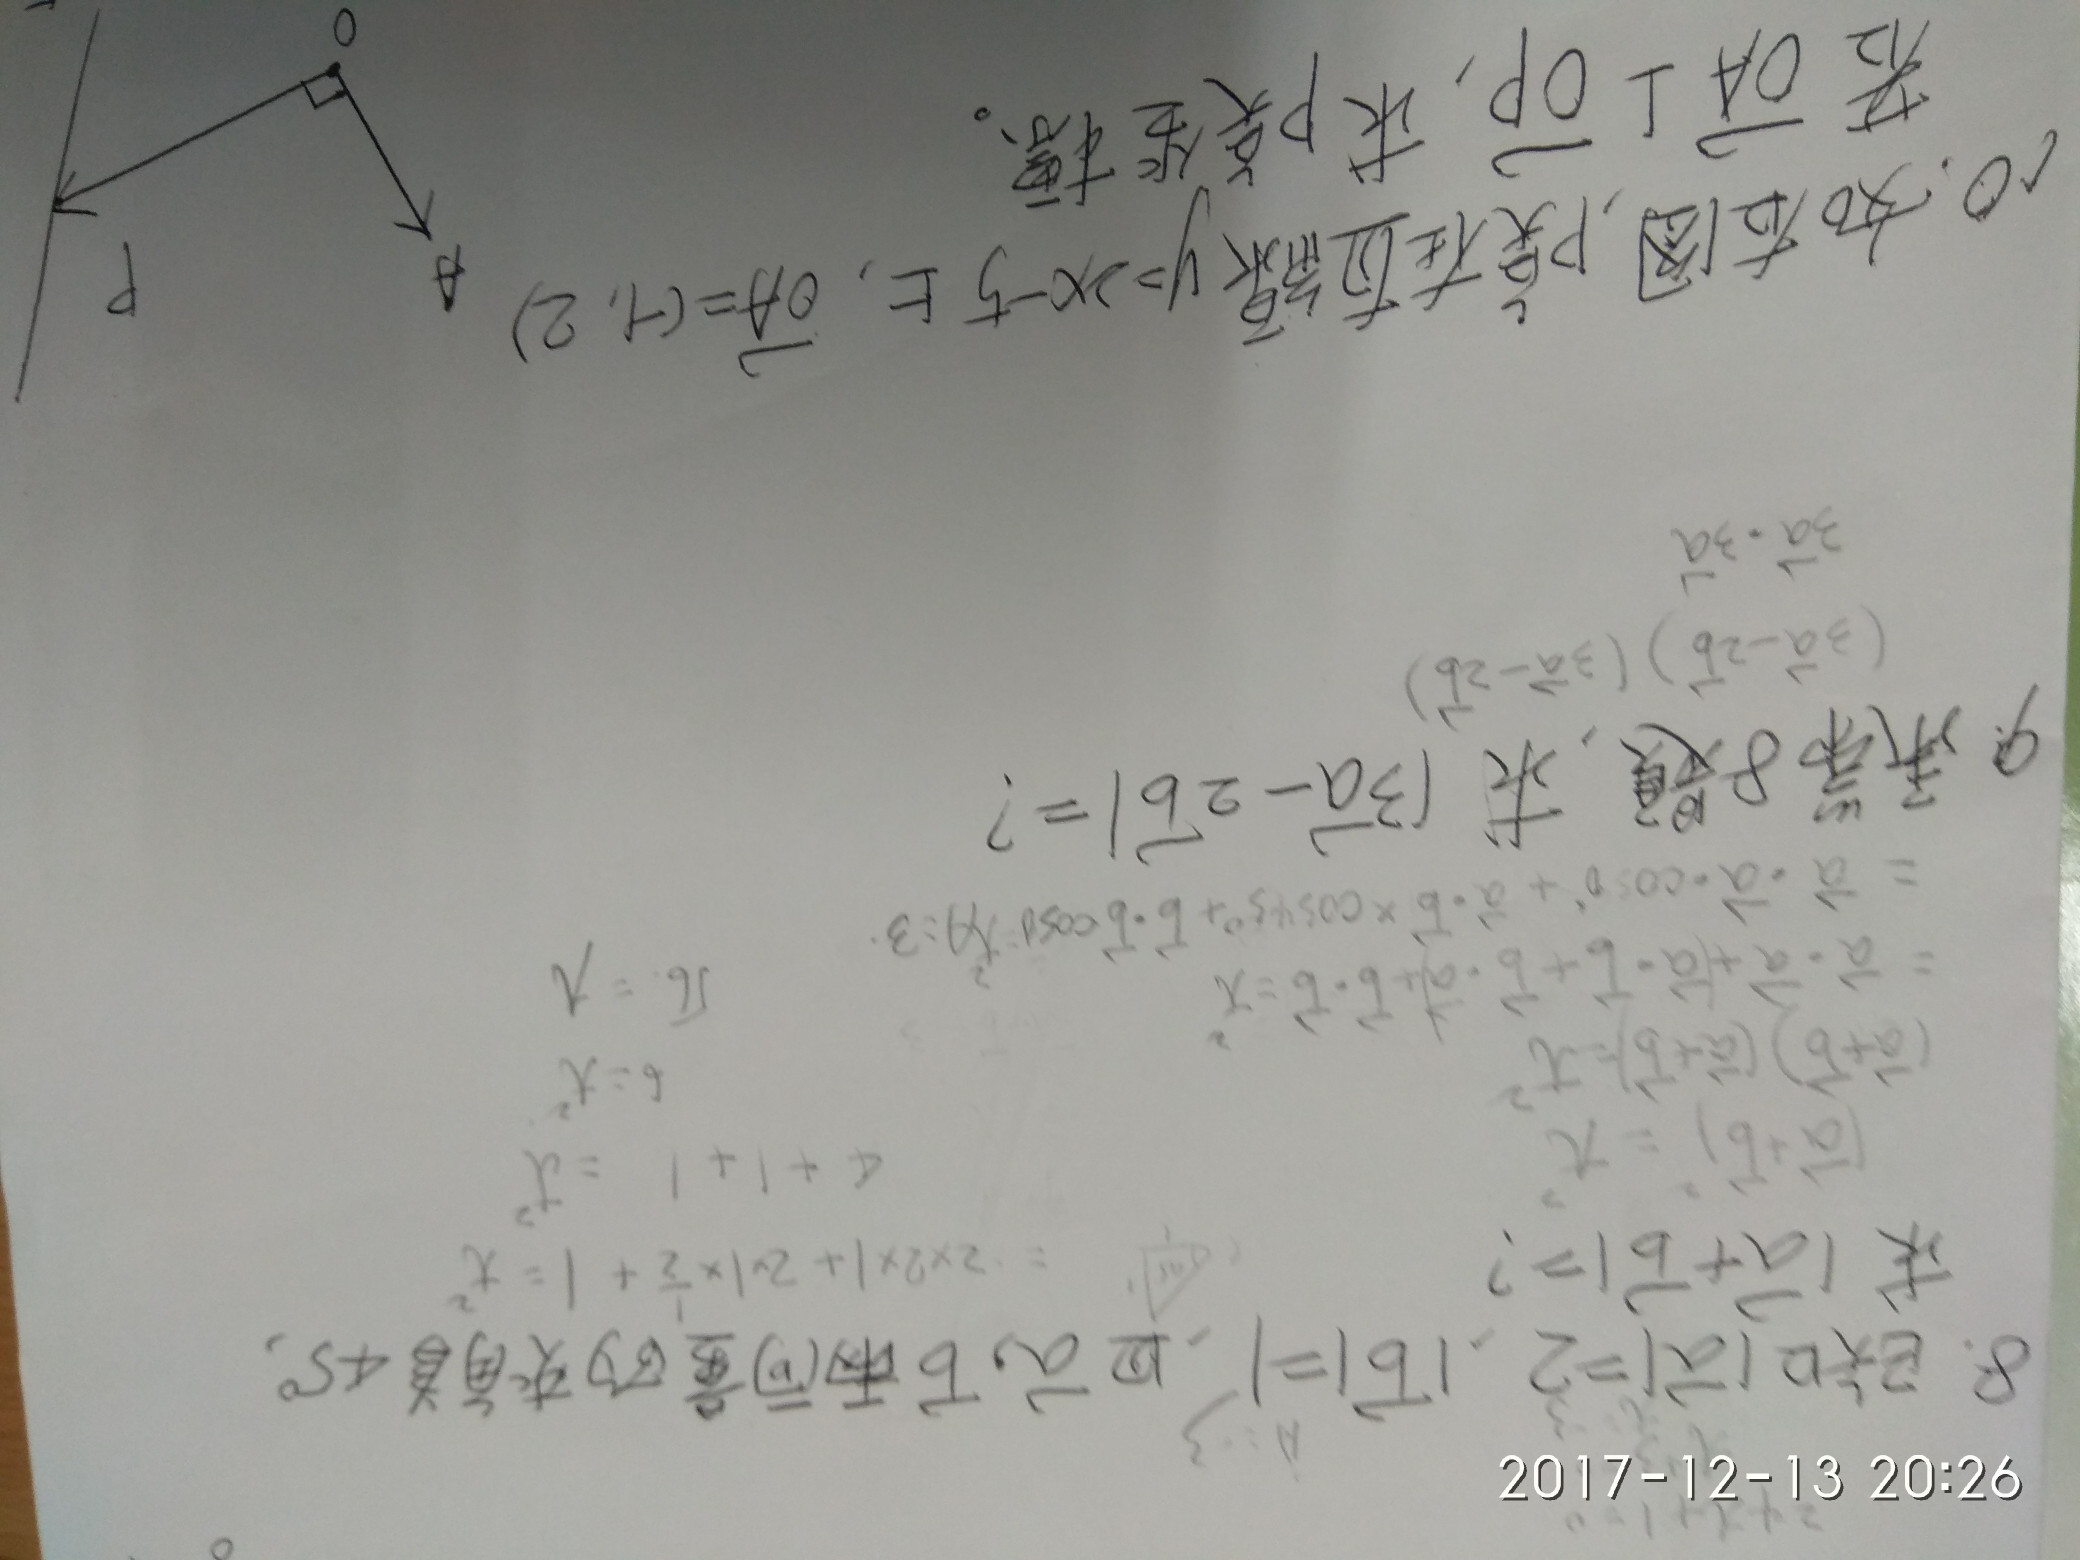 8. 已知|a|=2,|b|=1,且a、b兩向量的夾角為45°,
求|a+b|=?
(a+b)² = x²
(a+b)(a+b)=x²
= a·a+a·b+b·a+b·b=x²
= a·a·cos0°+a·b×cos45°+b·b cos0
= 2×2×1+2×1×1/2+1=x²
4+1+1 = x²
6=x²
√6=x
9. 承第8題,求|3a-2b|=?
(3a-2b)(3a-2b)
3a·3a
10. 如右圖,P點在直線y=2x-5上,OA=(-1,2)
若OA⊥OP,求P點坐標。
O
A
P
2017-12-13 20:26